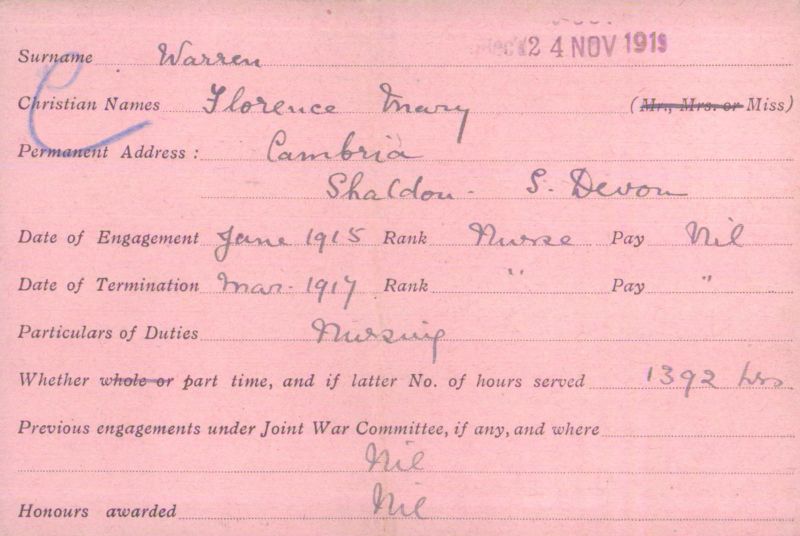 Rec'd 24 NOV 1919
Surname Warren
Christian Names Florence Mary (Mr., Mrs. or Miss)
Permanent Address : Cambria
Shaldon - S. Devon
Date of Engagement June 1915 Rank Nurse Pay Nil
Date of Termination Mar. 1917 Rank " Pay "
Particulars of Duties Nursing
Whether whole or part time, and if latter No. of hours served 1392 hrs
Previous engagements under Joint War Committee, if any, and where
Nil
Honours awarded Nil